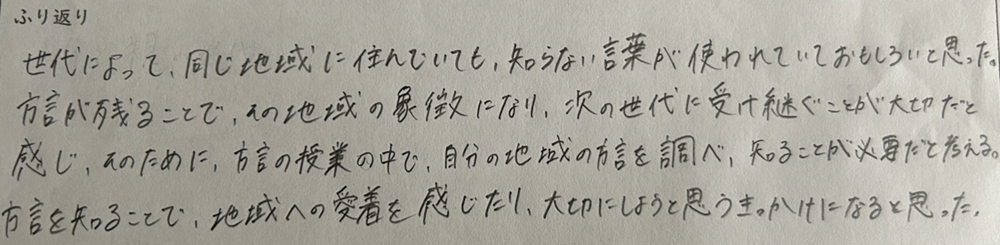 ふり返り
世代によって、同じ地域に住んでいても、知らない言葉が使われていておもしろいと思った。
方言が残ることで、その地域の象徴になり、次の世代に受け継ぐことが大切だと
感じ、そのために、方言の授業の中で、自分の地域の方言を調べ、知ることが必要だと考える。
方言を知ることで、地域への愛着を感じたり、大切にしようと思うきっかけになると思った。